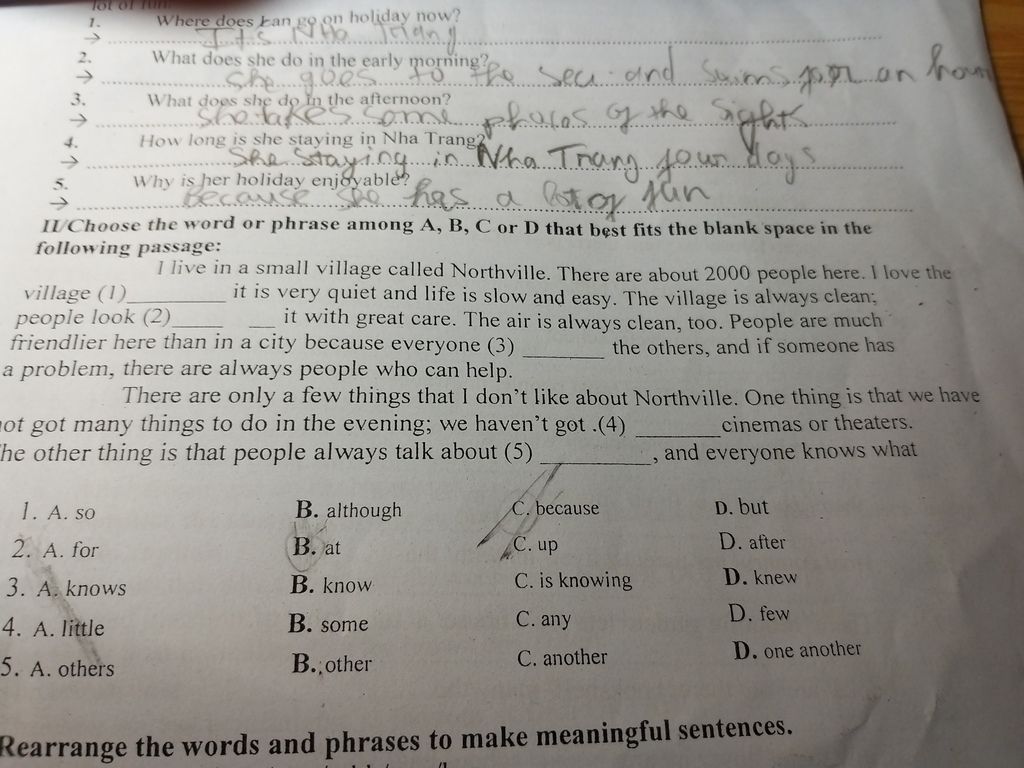 lot of fun.
1. Where does Lan go on holiday now?
→ It's Nha Trang
2. What does she do in the early morning?
→ She goes to the sea and swims for an hour
3. What does she do in the afternoon?
→ She takes some photos of the sights
4. How long is she staying in Nha Trang?
→ She staying in Nha Trang four days
5. Why is her holiday enjoyable?
→ Because she has a lot of fun
II/Choose the word or phrase among A, B, C or D that best fits the blank space in the
following passage:
I live in a small village called Northville. There are about 2000 people here. I love the
village (1)__________ it is very quiet and life is slow and easy. The village is always clean;
people look (2)_____ ___ it with great care. The air is always clean, too. People are much
friendlier here than in a city because everyone (3) ________ the others, and if someone has
a problem, there are always people who can help.
There are only a few things that I don't like about Northville. One thing is that we have
not got many things to do in the evening; we haven't got .(4) ________cinemas or theaters.
The other thing is that people always talk about (5) ___________, and everyone knows what
1. A. so B. although C. because D. but
2. A. for B. at C. up D. after
3. A. knows B. know C. is knowing D. knew
4. A. little B. some C. any D. few
5. A. others B. other C. another D. one another
Rearrange the words and phrases to make meaningful sentences.